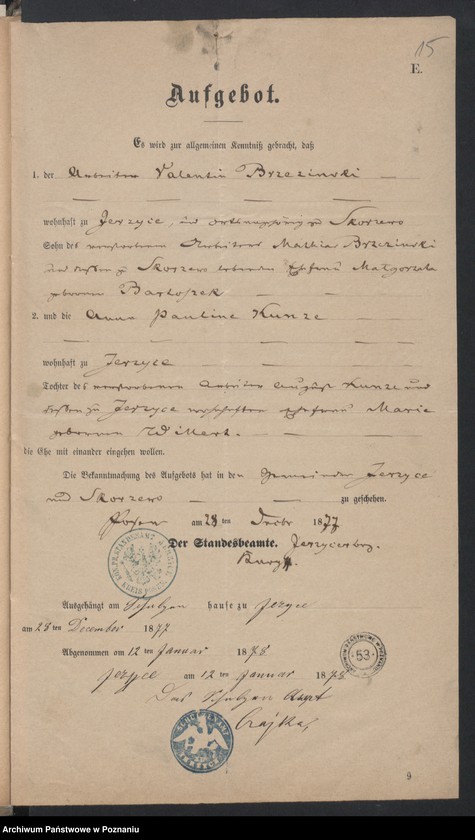 15
E.
Aufgebot.
Es wird zur allgemeinen Kenntniß gebracht, daß
1. der Arbeiter Valentin Brzezinski
wohnhaft zu Jerzyce, und Skorzewo
Sohn des verstorbenen Arbeiters Mathias Brzezinski
und dessen zu Skorzewo lebenden Ehefrau Małgorzata
geborenen Bartoszek
2. und die Anna Pauline Kunze
wohnhaft zu Jerzyce
Tochter des verstorbenen Arbeiter August Kunze und
dessen zu Jerzyce Ehefrau Marie
geborenen Willert.
die Ehe mit einander eingehen wollen.
Die Bekanntmachung des Aufgebots hat in den Gemeinden Jerzyce
und Skorzewo zu geschehen.
Posen am 28 ten Decbr 1877
Der Standesbeamte.
Ausgehängt am Schulzen hause zu Jerzyce
am 28 ten December 1877
Abgenommen am 12 ten Januar 1878
Jerzyce am 12 ten Januar 1878
Das Schulzen Amt
Czajka
53
9
Archiwum Państwowe w Poznaniu